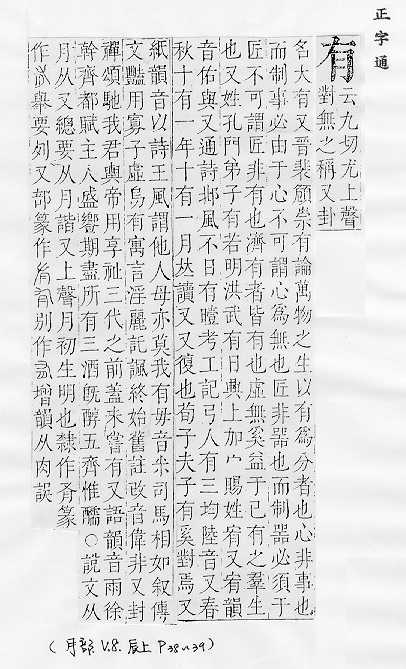 正字通
有
云九切尤上聲
對無之稱又卦
名大有又晉裴頠崇有論萬物之生以有爲分者也心非事也
而制事必由于心不可謂心爲無也匠非器也而制器必須于
匠不可謂匠非有也濟有者皆有也虛無奚益于已有之羣生
也又姓孔門弟子有若明洪武有日興上加宀賜姓宥又宥韻
音佑與又通詩邶風不日有曀考工記弓人有三均陸音又春
秋十有一年十有一月𠀤讀又又復也荀子夫子有奚對焉又
紙韻音以詩王風謂他人母亦莫我有毋音米司馬相如叙傳
文豔用寡子虛烏有寓言淫麗託諷終始舊註改音偉非又封
禪頌馳我君輿帝用享祉三代之前蓋未嘗有又語韻音雨徐
幹齊都賦主人盛饗期盡所有三酒旣醇五齊惟醹○說文从
月从又總要从月諧又上聲月初生明也隸作有篆
作 舉要列又部篆作 別作 增韻从肉誤
(月部 V.8. 辰上 P38~39)